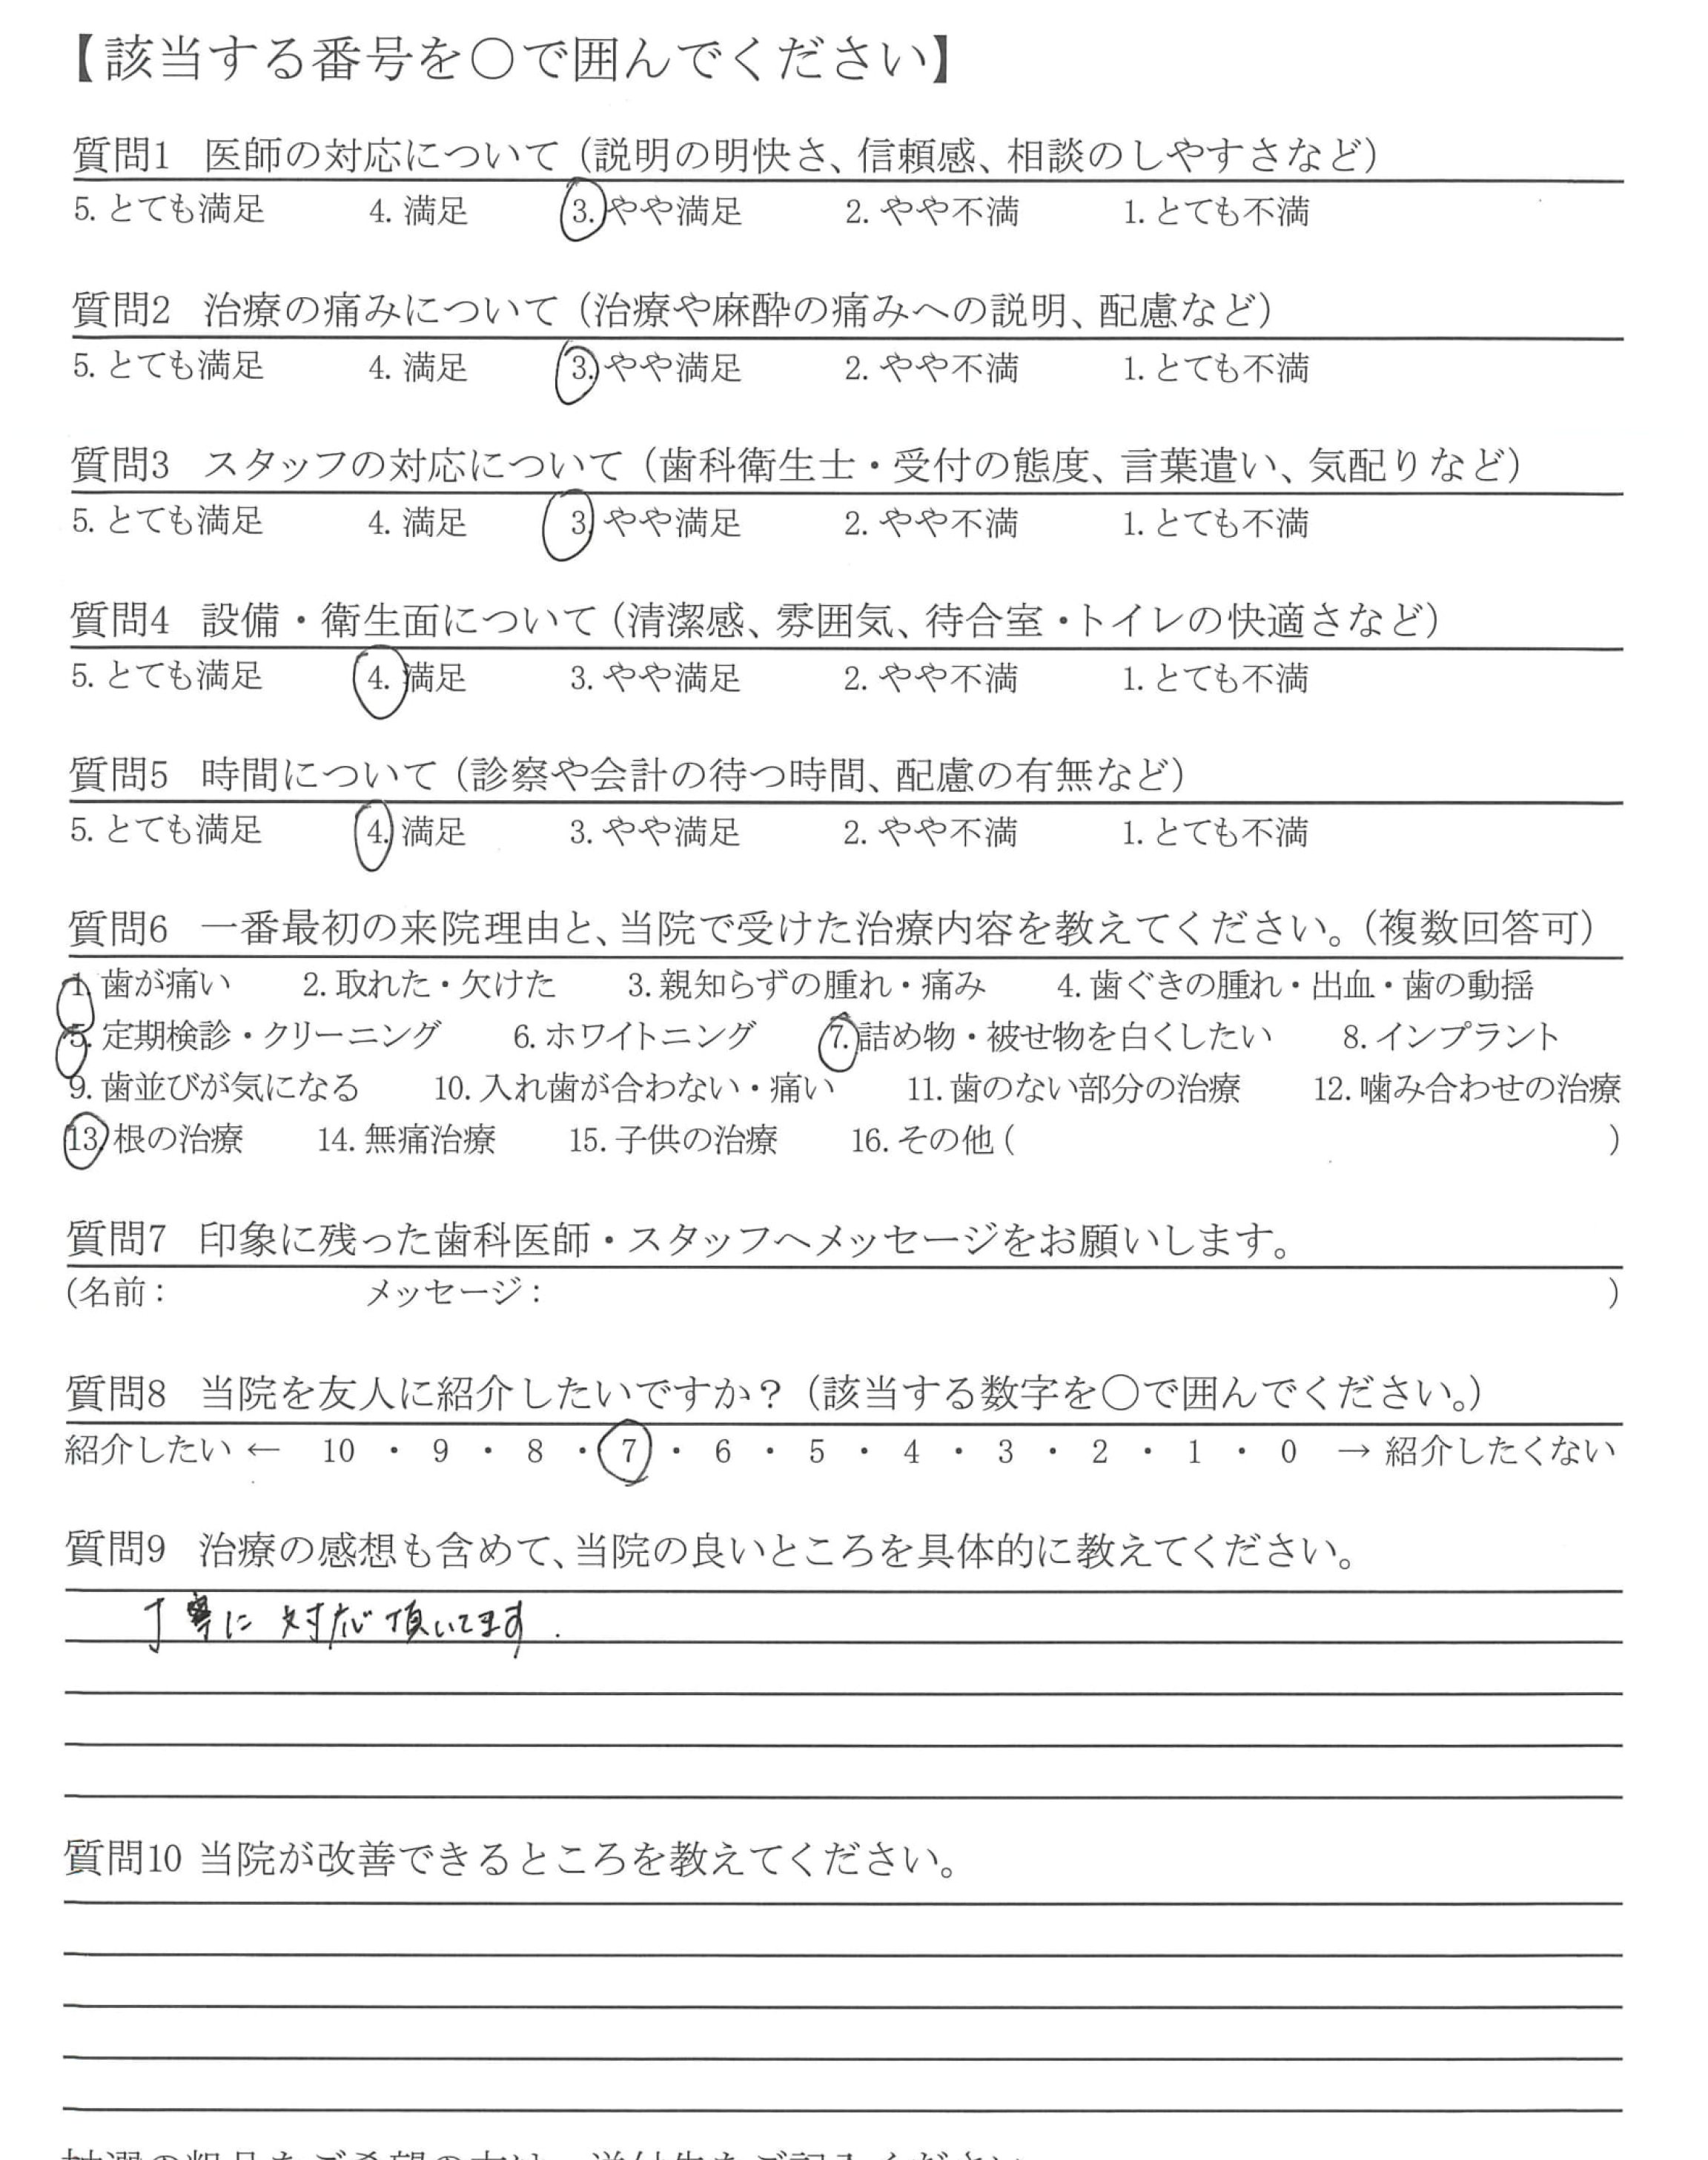 【該当する番号を○で囲んでください】
質問1 医師の対応について（説明の明快さ、信頼感、相談のしやすさなど）
5. とても満足 4. 満足 3. やや満足 2. やや不満 1. とても不満
質問2 治療の痛みについて（治療や麻酔の痛みへの説明、配慮など）
5. とても満足 4. 満足 3. やや満足 2. やや不満 1. とても不満
質問3 スタッフの対応について（歯科衛生士・受付の態度、言葉遣い、気配りなど）
5. とても満足 4. 満足 3. やや満足 2. やや不満 1. とても不満
質問4 設備・衛生面について（清潔感、雰囲気、待合室・トイレの快適さなど）
5. とても満足 4. 満足 3. やや満足 2. やや不満 1. とても不満
質問5 時間について（診察や会計の待つ時間、配慮の有無など）
5. とても満足 4. 満足 3. やや満足 2. やや不満 1. とても不満
質問6 一番最初の来院理由と、当院で受けた治療内容を教えてください。（複数回答可）
1. 歯が痛い 2. 取れた・欠けた 3. 親知らずの腫れ・痛み 4. 歯ぐきの腫れ・出血・歯の動揺
5. 定期検診・クリーニング 6. ホワイトニング 7. 詰め物・被せ物を白くしたい 8. インプラント
9. 歯並びが気になる 10. 入れ歯が合わない・痛い 11. 歯のない部分の治療 12. 噛み合わせの治療
13. 根の治療 14. 無痛治療 15. 子供の治療 16. その他（ ）
質問7 印象に残った歯科医師・スタッフへメッセージをお願いします。
（名前： メッセージ： ）
質問8 当院を友人に紹介したいですか？（該当する数字を○で囲んでください。）
紹介したい ← 10 ・ 9 ・ 8 ・ 7 ・ 6 ・ 5 ・ 4 ・ 3 ・ 2 ・ 1 ・ 0 → 紹介したくない
質問9 治療の感想も含めて、当院の良いところを具体的に教えてください。
丁寧に対応頂いてます.
質問10 当院が改善できるところを教えてください。
抽選の粗品をご希望の方は、送付先をご記入ください